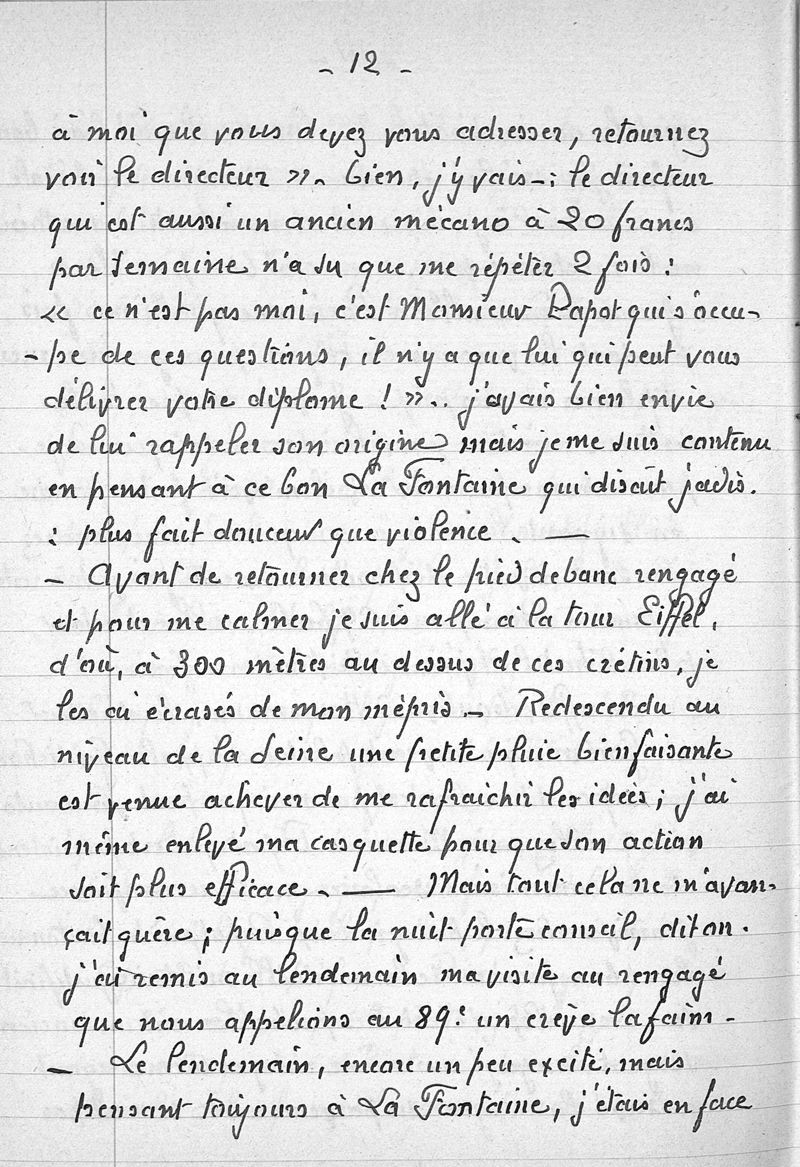 - 12 -
à moi que vous devez vous adresser, retournez
voir le directeur ». bien, j'y vais -: le directeur
qui est aussi un ancien mécano à 20 francs
par semaine n'a su que me répéter 2 fois :
« ce n'est pas moi, c'est Monsieur Papot qui s'occu-
- pe de ces questions, il n'y a que lui qui peut vous
délivrer votre diplome ! ».. j'avais bien envie
de lui rappeler son origine mais je me suis contenu
en pensant à ce bon La Fontaine qui disait jadis.
: plus fait douceur que violence . —
- Avant de retourner chez le pied de banc rengagé
et pour me calmer je suis allé à la tour Eiffel,
d'où, à 300 mètres au dessus de ces crétins, je
les ai écrasés de mon mépris - Redescendu au
niveau de la Seine une petite pluie bienfaisante
est venue achever de me rafraichir les idées ; j'ai
même enlevé ma casquette pour que son action
soit plus efficace . — Mais tout cela ne m'avan-
çait guère ; puisque la nuit porte conseil, dit on.
j'ai remis au lendemain ma visite au rengagé
que nous appelions au 89e un crève la faim -
- Le lendemain, encore un peu excité, mais
pensant toujours à La Fontaine, j'étais en face